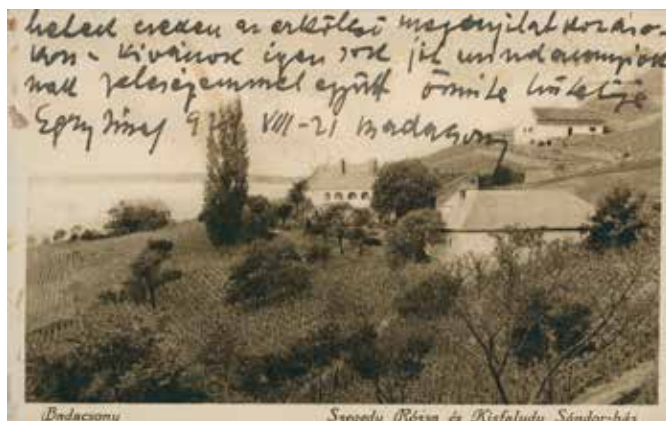 heled ezeken az erkölcsi megnyilatkozáso-
kon - Kívánok igen sok jót mindannyiok
nak feleségemmel együtt
Egry József VIII-21 Badacsony
Badacsony
Szegedy Róza és Kisfaludy Sándor-ház